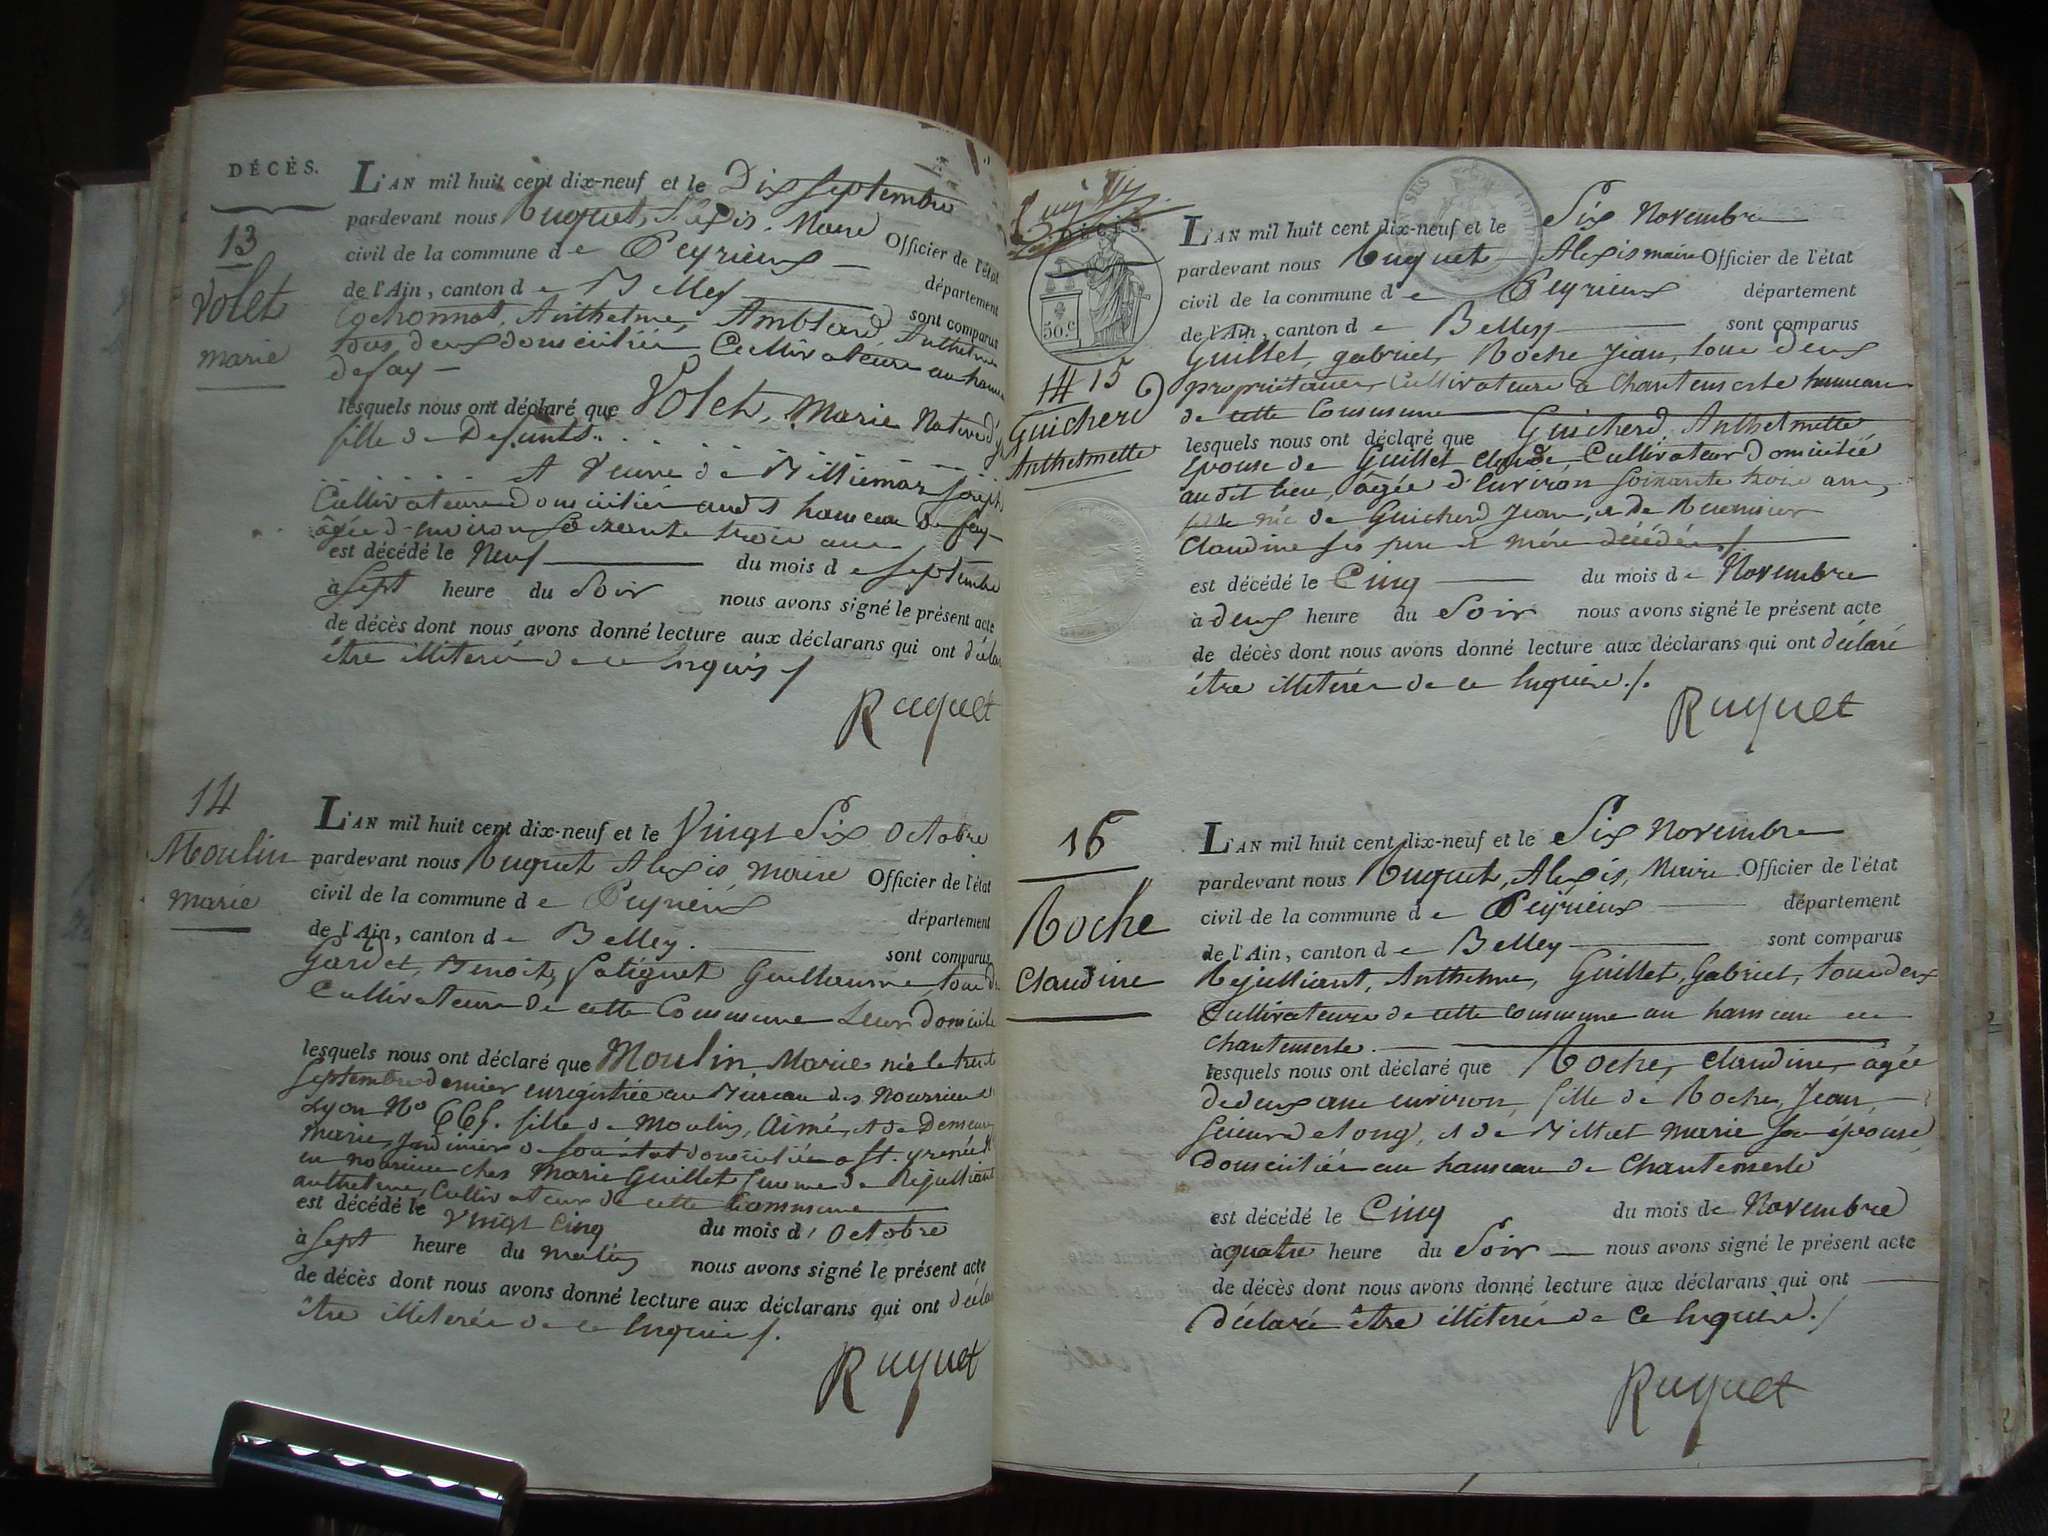 DÉCÈS.
13
Volet
marie
L'AN mil huit cent dix-neuf et le Dix septembre
pardevant nous Ruquet, Alexis. Maire Officier de l'état
civil de la commune de Peyrieux — département
de l'Ain, canton de Belley — sont comparus
Cochonnat, Anthelme, Amblard, Anthelme
tous deux domiciliés Cultivateurs au hameau
de fay —
lesquels nous ont déclaré que Volet, Marie Native d'y
fille de Defunts
et Veuve de Billiemaz Joseph
Cultivateur domicilié audt hameau de fay
âgée d'environ soizante trois ans
est décédé le Neuf — du mois de septembre
à sept heure du Soir nous avons signé le présent acte
de décès dont nous avons donné lecture aux déclarans qui ont déclaré
être illiterés de ce Enquis /
Ruquet
14
Moulin
marie
L'AN mil huit cent dix-neuf et le Vingt Six Octobre
pardevant nous Ruquet Alexis, maire Officier de l'état
civil de la commune de Peyrieux département
de l'Ain, canton de Belley. — sont comparus
Gardet, Benoit, Guillaume tous deux
Cultivateurs de cette Commune Leur domicile
lesquels nous ont déclaré que Moulin Marie née le huit
Septembre dernier enregistrée au Bureau des Nourrices
Lyon No 665. fille de Moulin, Aimé, et de
marie, domiciliés a St.
en nourrice chez Marie Guillet femme de Rejulliant
anthelme, Cultivateur de cette Commune —
est décédé le Vingt Cinq du mois d'Octobre
à Sept heure du matin nous avons signé le présent acte
de décès dont nous avons donné lecture aux déclarans qui ont déclaré
être illiterés de ce Enquis /.
Ruquet
DÉCÈS.
50.c
14 15
Guicherd
Anthelmette
L'AN mil huit cent dix-neuf et le Six Novembre
pardevant nous Ruquet Alexis maire Officier de l'état
civil de la commune de Peyrieux département
de l'Ain, canton de Belley — sont comparus
Guillet, gabriel, Roche Jean, tous deux
propriétaires Cultivateurs a Chantemerle hameau
de cette Commune —
lesquels nous ont déclaré que Guicherd Anthelmette
Epouse de Guillet claude, Cultivateur Domicilié
audit lieu, âgée d'Environ soixante trois ans,
née de Guicherd Jean, et de Meunier
Claudine ses père et mère décédés /
est décédé le Cinq — du mois de Novembre
à deux heure du Soir nous avons signé le présent acte
de décès dont nous avons donné lecture aux déclarans qui ont déclaré
être illiterés de ce Enquis. /.
Ruquet
16
Roche
Claudine
L'AN mil huit cent dix-neuf et le Six Novembre
pardevant nous Ruquet, Alexis, Maire Officier de l'état
civil de la commune de Peyrieux — département
de l'Ain, canton de Belley — sont comparus
Rejulliant, Anthelme, Guillet, Gabriel, tous deux
Cultivateurs de cette commune au hameau de
chantemerle. —
lesquels nous ont déclaré que Roche, Claudine, agée
de deux ans environ, fille de Roche, Jean, —
et de Billiet marie son épouse,
domiciliés au hameau de Chantemerle
est décédé le Cinq du mois de Novembre
à quatre heure du Soir — nous avons signé le présent acte
de décès dont nous avons donné lecture aux déclarans qui ont —
déclaré être illiterés de ce Enquis. /
Ruquet